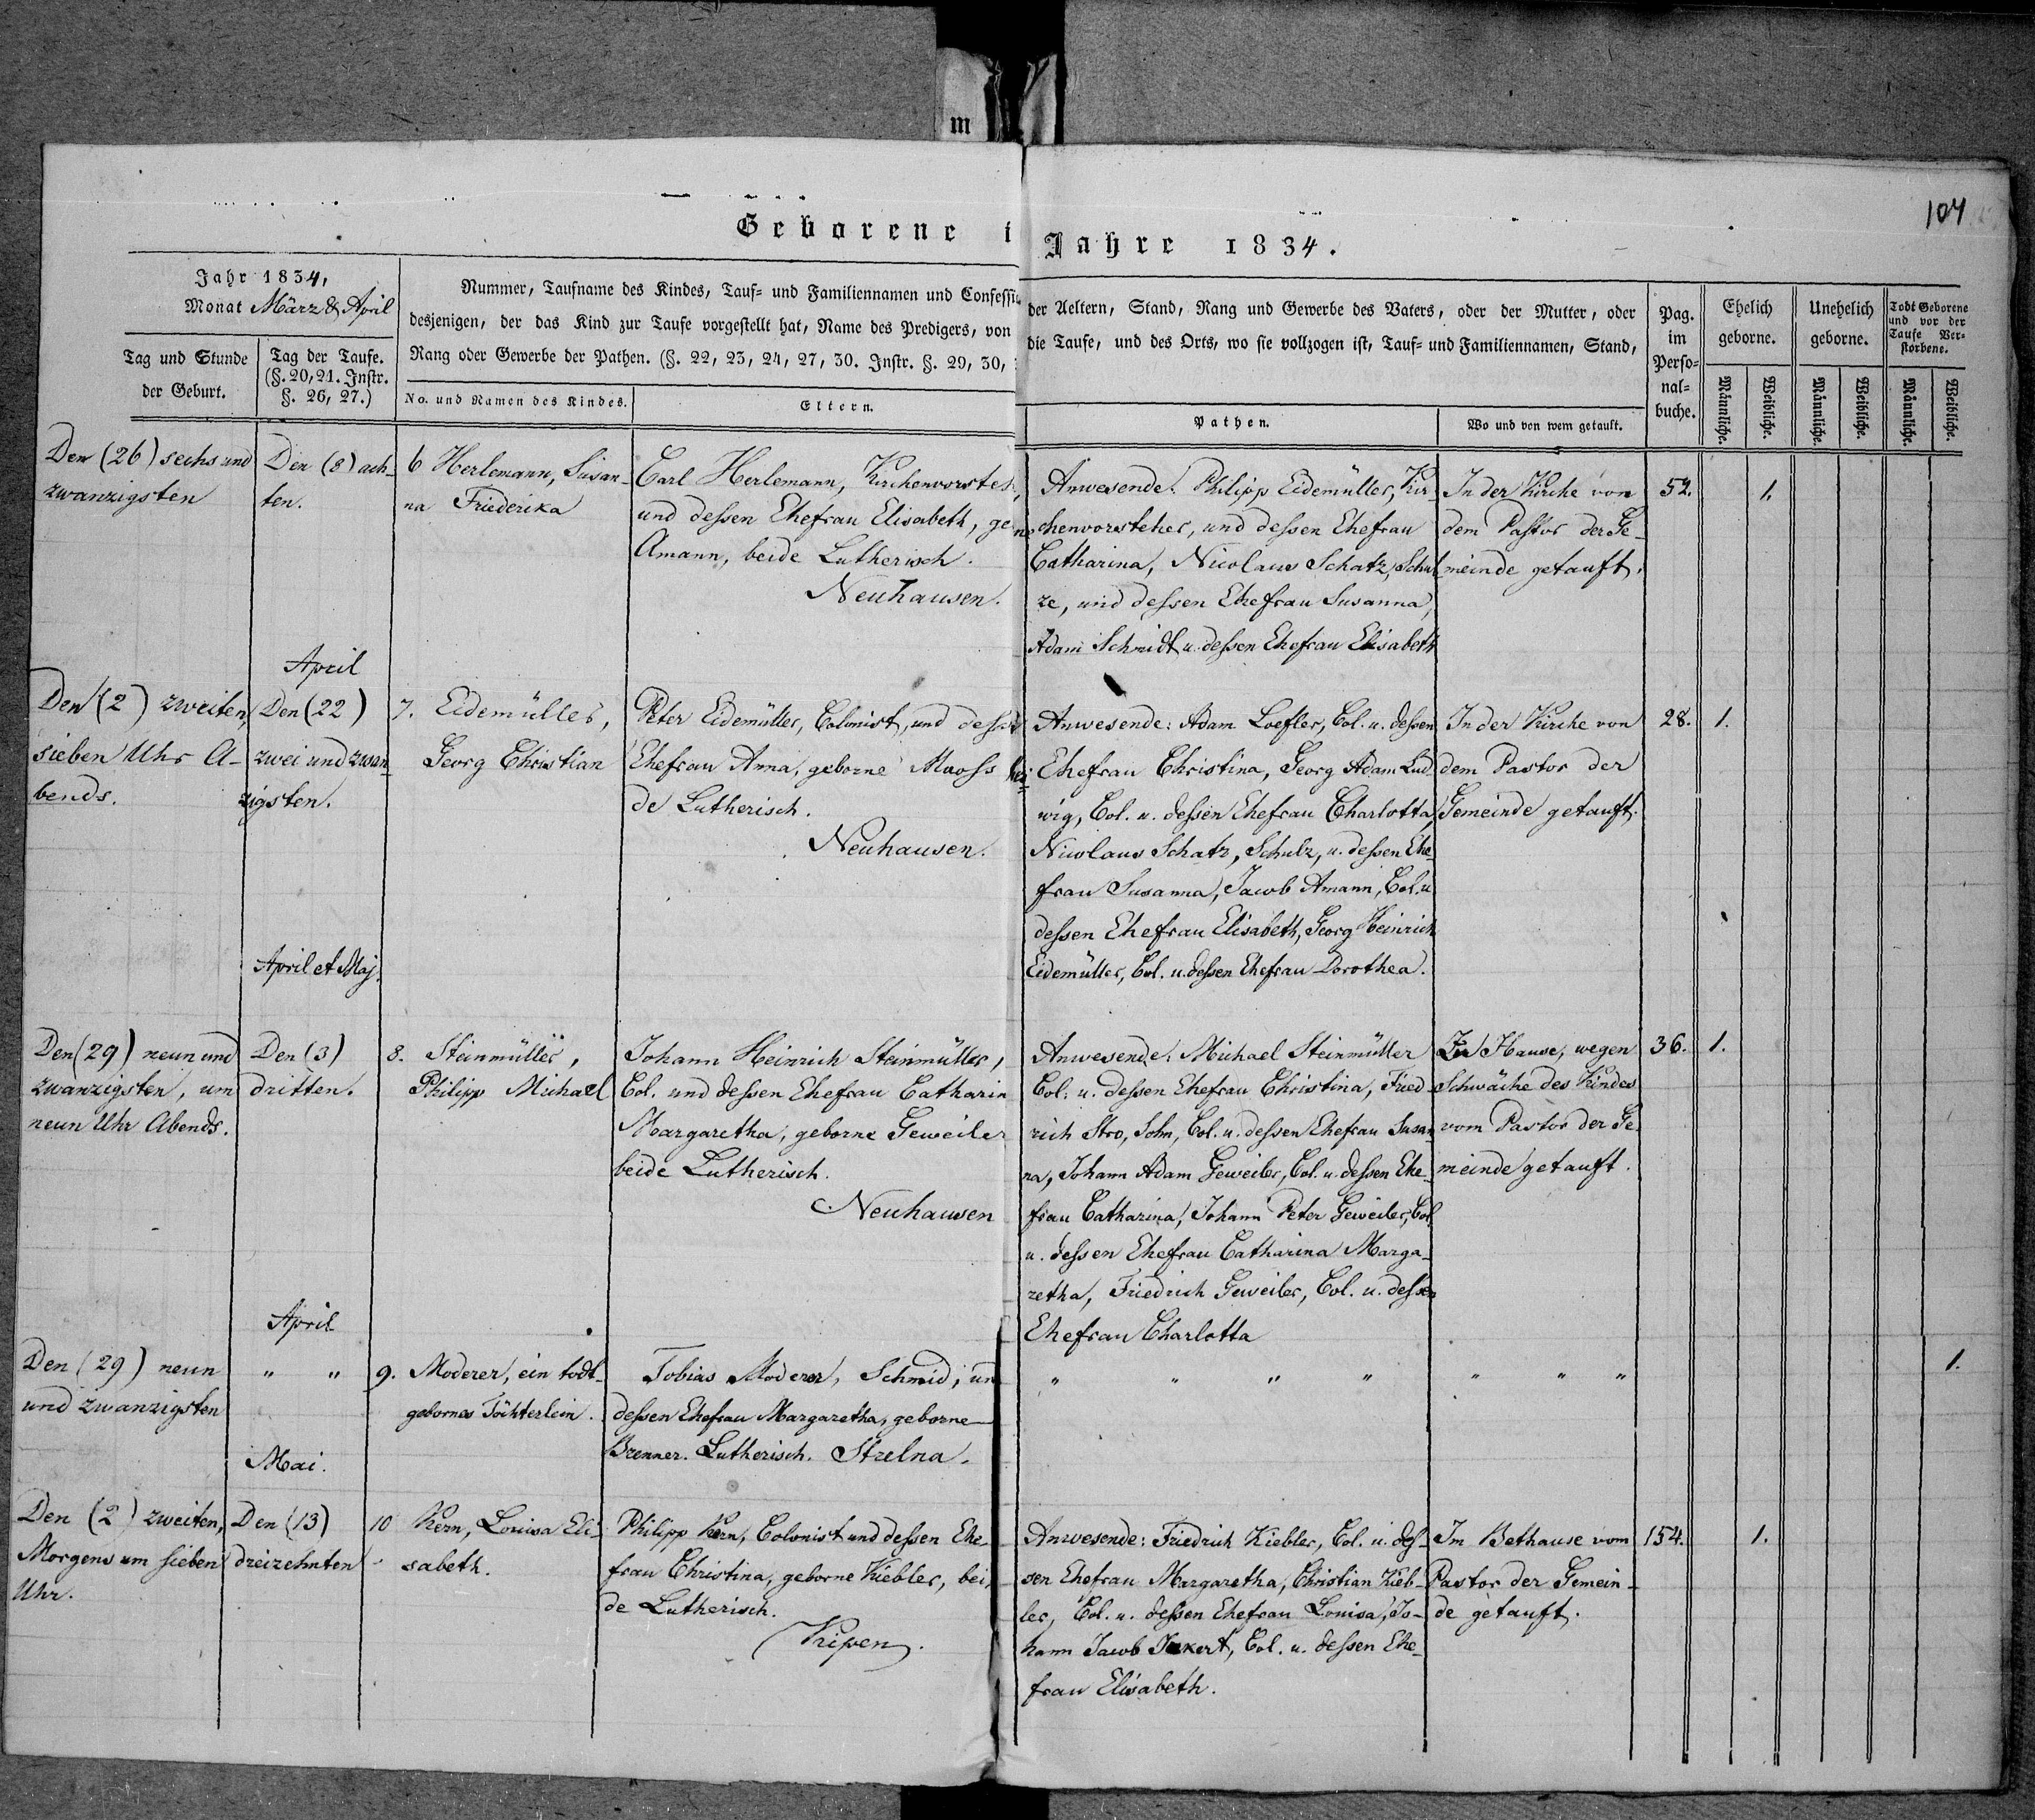 m
104
Geborene i
Jahre 1834.
Jahr 1834,
Monat März & April
Tag und Stunde
der Geburt.
Tag der Taufe.
(§. 20, 21. Instr.
§. 26, 27.)
Nummer, Taufname des Kindes, Tauf- und Familiennamen und Confessi
desjenigen, der das Kind zur Taufe vorgestellt hat, Name des Predigers, von
Rang oder Gewerbe der Pathen. (§. 22, 23, 24, 27, 30. Instr. §. 29, 30,
No. und Namen des Kindes.
Eltern.
der Aeltern, Stand, Rang und Gewerbe des Vaters, oder der Mutter, oder
die Taufe, und des Orts, wo sie vollzogen ist, Tauf- und Familiennamen, Stand,
Pathen.
Wo und von wem getauft.
Pag.
im
Perso-
nal-
buche.
Ehelich
geborne.
Unehelich
geborne.
Todt Geborene
und vor der
Taufe Ver-
storbene.
Männliche.
Weibliche.
Männliche.
Weibliche.
Männliche.
Weibliche.
Den (26) sechs und
zwanzigsten
Den (8) ach-
ten.
6 Herlemann, Susan-
na Friederika
Carl Herlemann, Kirchenvorsteh
und dessen Ehefrau Elisabeth, ge
Amann, beide Lutherisch.
Neuhausen.
Anwesende: Philipp Eidemüller, Kir-
chenvorsteher, und dessen Ehefrau
Catharina, Nicolaus Schatz, Schul-
ze, und dessen Ehefrau Susanna,
Adam Schmidt u. dessen Ehefrau Elisabeth
In der Kirche von
dem Pastor der Ge-
meinde getauft.
52.
1.
April
Den (2) zweiten,
sieben Uhr A-
bends.
Den (22)
zwei und zwan-
zigsten.
7. Eidemüller,
Georg Christian
Peter Eidemüller, Colonist, und dessen
Ehefrau Anna, geborne Maoss bei-
de Lutherisch.
Neuhausen.
Anwesende: Adam Loefler, Col. u. dessen
Ehefrau Christina, Georg Adam Lud-
wig, Col. u. dessen Ehefrau Charlotta,
Nicolaus Schatz, Schulz, u. dessen Ehe-
frau Susanna, Jacob Amann, Col. u
dessen Ehefrau Elisabeth, Georg Heinrich
Eidemüller, Col. u. dessen Ehefrau Dorothea.
In der Kirche von
dem Pastor der
Gemeinde getauft.
28.
1.
April et Maj.
Den (29) neun und
zwanzigsten, um
neun Uhr Abends.
Den (3)
dritten.
8. Steinmüller,
Philipp Michael
Johann Heinrich Steinmüller,
Col. und dessen Ehefrau Catharin
Margaretha, geborne Geweiler
beide Lutherisch.
Neuhausen
Anwesende: Michael Steinmüller
Col. u. dessen Ehefrau Christina, Fried-
rich Stro, Sohn, Col. u. dessen Ehefrau Susan-
na, Johann Adam Geweiler, Col. u. dessen Ehe-
frau Catharina, Johann Peter Geweiler, Col.
u. dessen Ehefrau Catharina Marga-
retha, Friedrich Geweiler, Col. u. dessen
Ehefrau Charlotta
Zu Hause, wegen
Schwäche des Kindes
vom Pastor der Ge-
meinde getauft.
36.
1.
April
Den (29) neun
und zwanzigsten
" "
9. Moderer, ein todt-
gebornes Töchterlein.
Tobias Moderer, Schmid, un
dessen Ehefrau Margaretha, geborne
Brenner. Lutherisch. Strelna.
" " " "
" " "
1.
Mai.
Den (2) zweiten,
Morgens um sieben
Uhr.
Den (13)
dreizehnten
10 Kern, Louisa Eli-
sabeth.
Philipp Kern, Colonist und dessen Ehe-
frau Christina, geborne Kiebler, bei-
de Lutherisch.
Kipen.
Anwesende: Friedrich Kiebler, Col. u. des-
sen Ehefrau Margaretha, Christian Kieb-
ler, Col. u. dessen Ehefrau Louisa, Jo-
hann Jacob Inkert, Col. u. dessen Ehe-
frau Elisabeth.
Im Bethause vom
Pastor der Gemein-
de getauft.
154.
1.